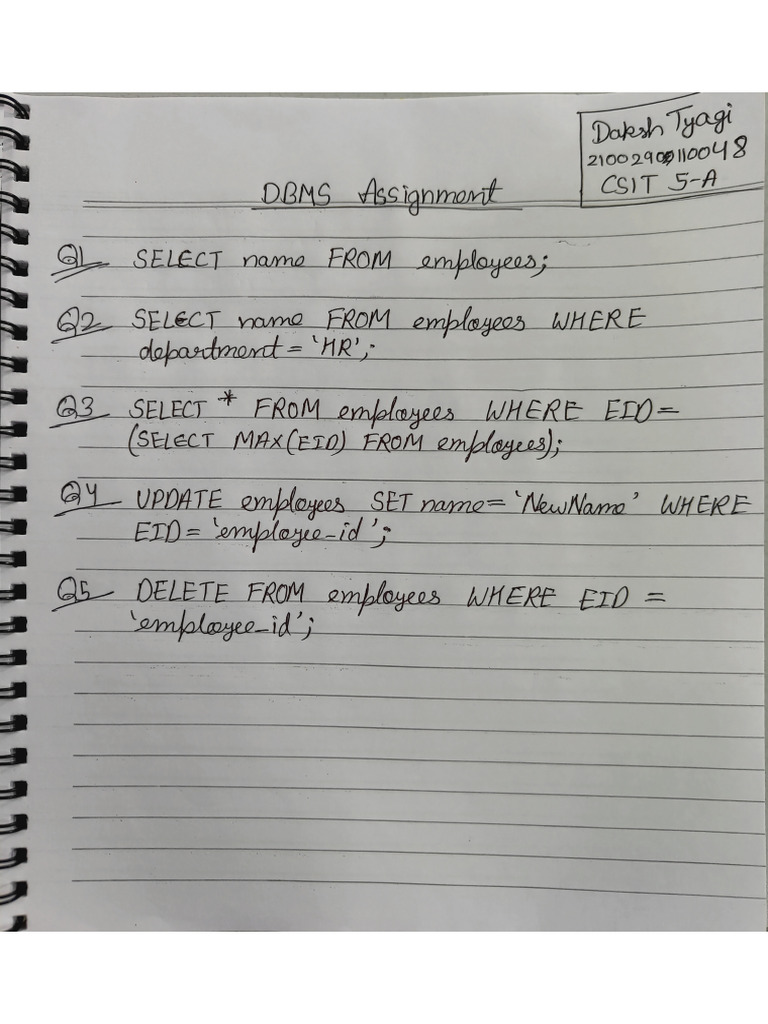 Daksh Tyagi
2100290110048
CSIT 5-A
DBMS Assignment
Q1 SELECT name FROM employees;
Q2 SELECT name FROM employees WHERE
department = 'HR';
Q3 SELECT * FROM employees WHERE EID =
(SELECT MAX(EID) FROM employees);
Q4 UPDATE employees SET name = 'NewName' WHERE
EID = 'employee_id';
Q5 DELETE FROM employees WHERE EID =
'employee_id';